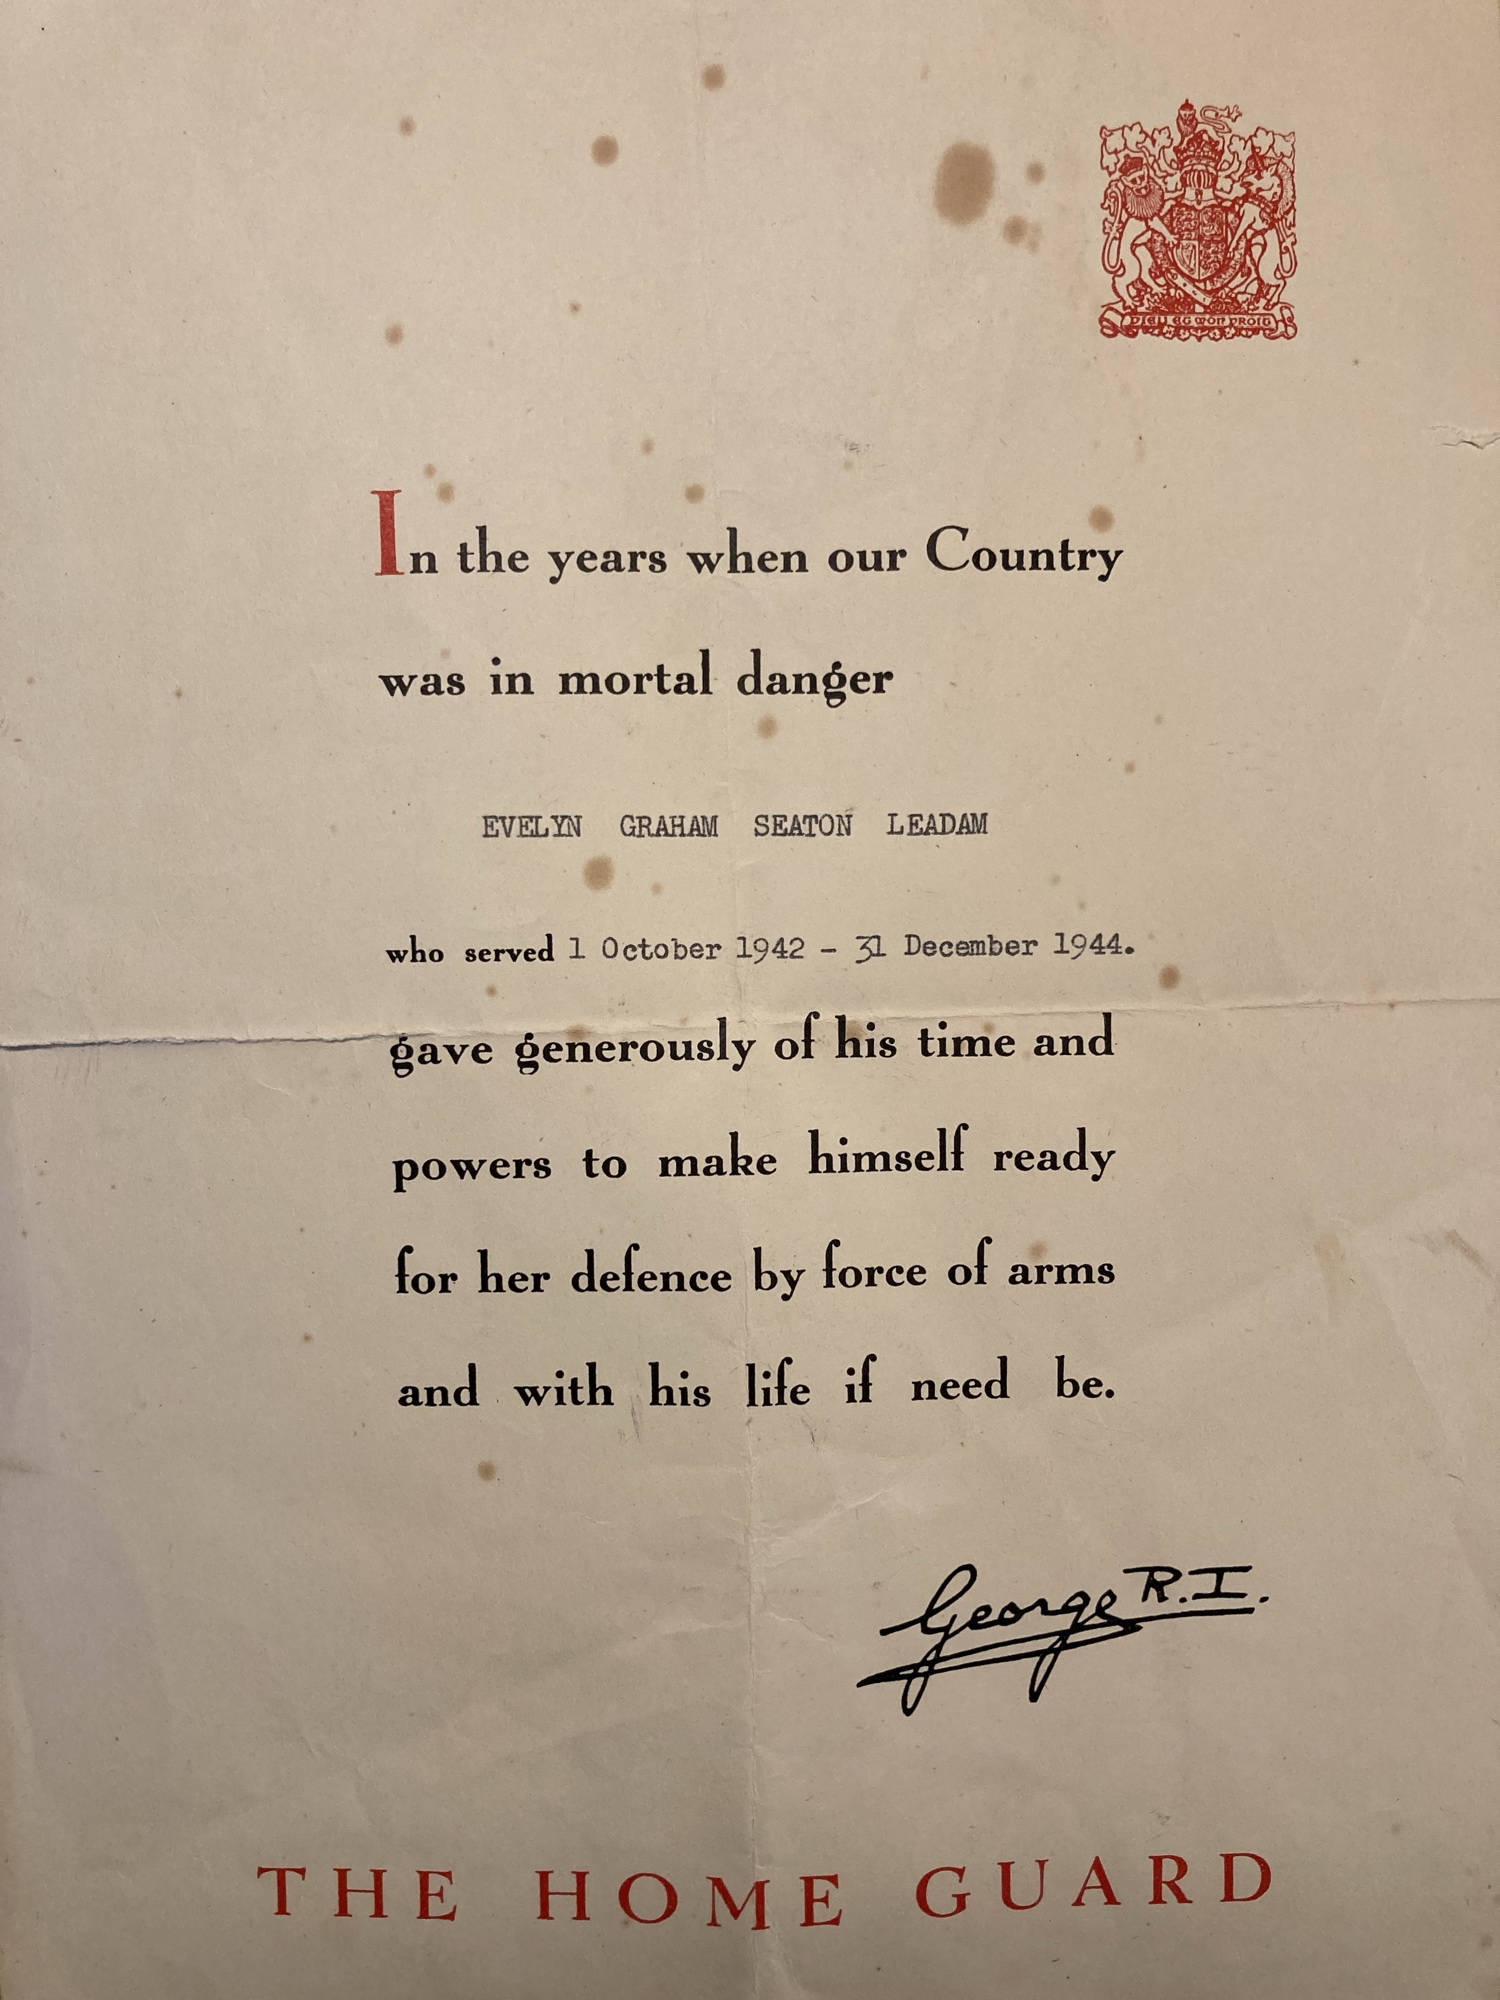 DIEU ET MON DROIT
In the years when our Country
was in mortal danger
EVELYN GRAHAM SEATON LEADAM
who served 1 October 1942 - 31 December 1944.
gave generously of his time and
powers to make himself ready
for her defence by force of arms
and with his life if need be.
George R.I.
THE HOME GUARD